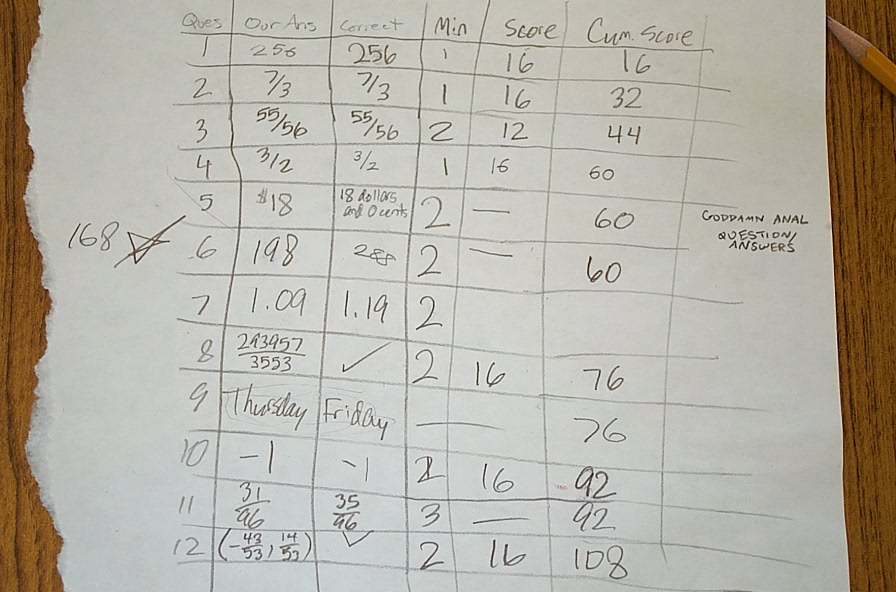 Ques Our Ans Correct Min Score Cum. Score
1 256 256 1 16 16
2 7/3 7/3 1 16 32
3 55/56 55/56 2 12 44
4 3/2 3/2 1 16 60
5 $18 18 dollars and 0 cents 2 — 60
GODDAMN ANAL
QUESTION/
ANSWERS
168 ☆
6 198 288 2 — 60
7 1.09 1.19 2
8 293957/3553 ✓ 2 16 76
9 Thursday Friday — 76
10 -1 -1 2 16 92
11 31/96 35/96 3 — 92
12 (-43/53, 14/53) ✓ 2 16 108